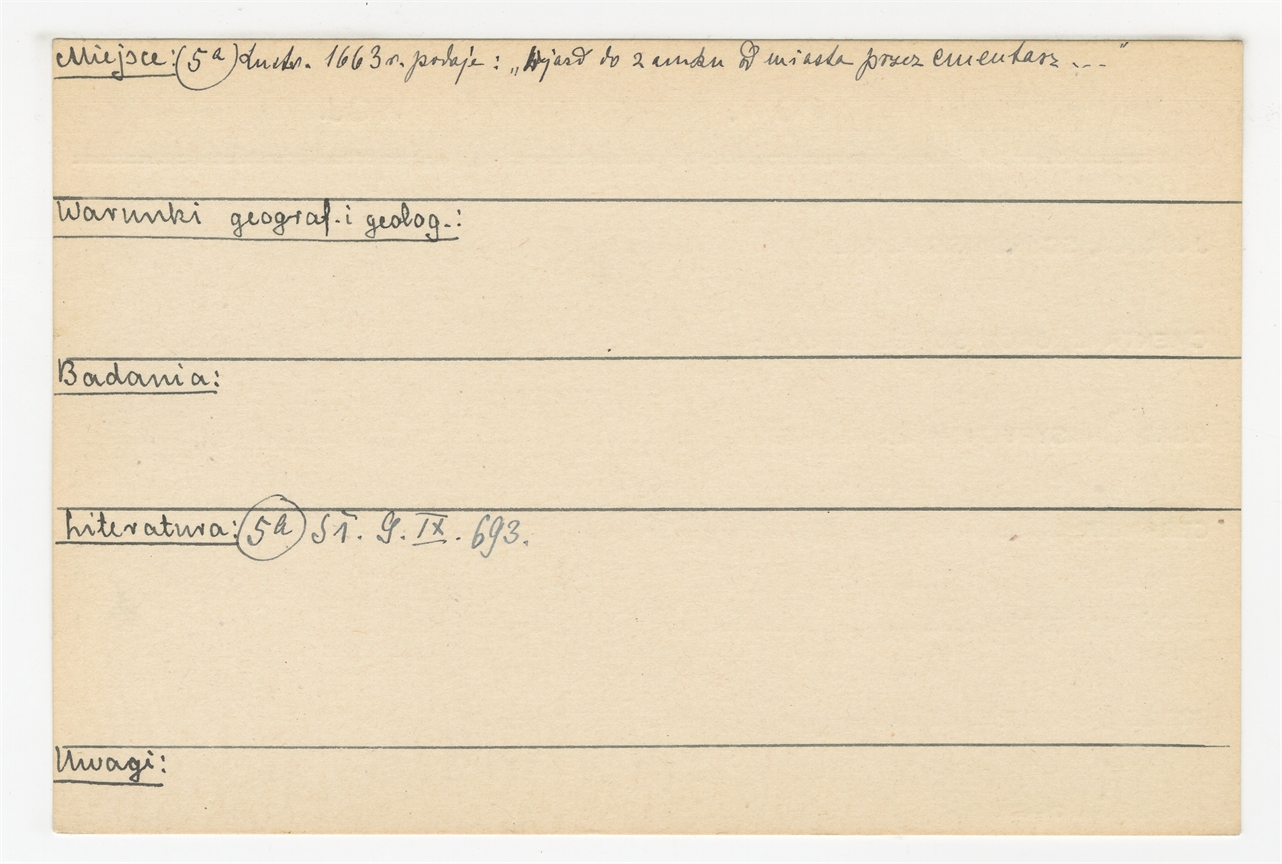 Miejsce: (5a) Lustr. 1663 r. podaje: „Wjazd do zamku od miasta przez cmentarz ..."
Warunki geograf. i geolog.:
Badania:
Literatura: (5a) Sł. G. IX. 693.
Uwagi: